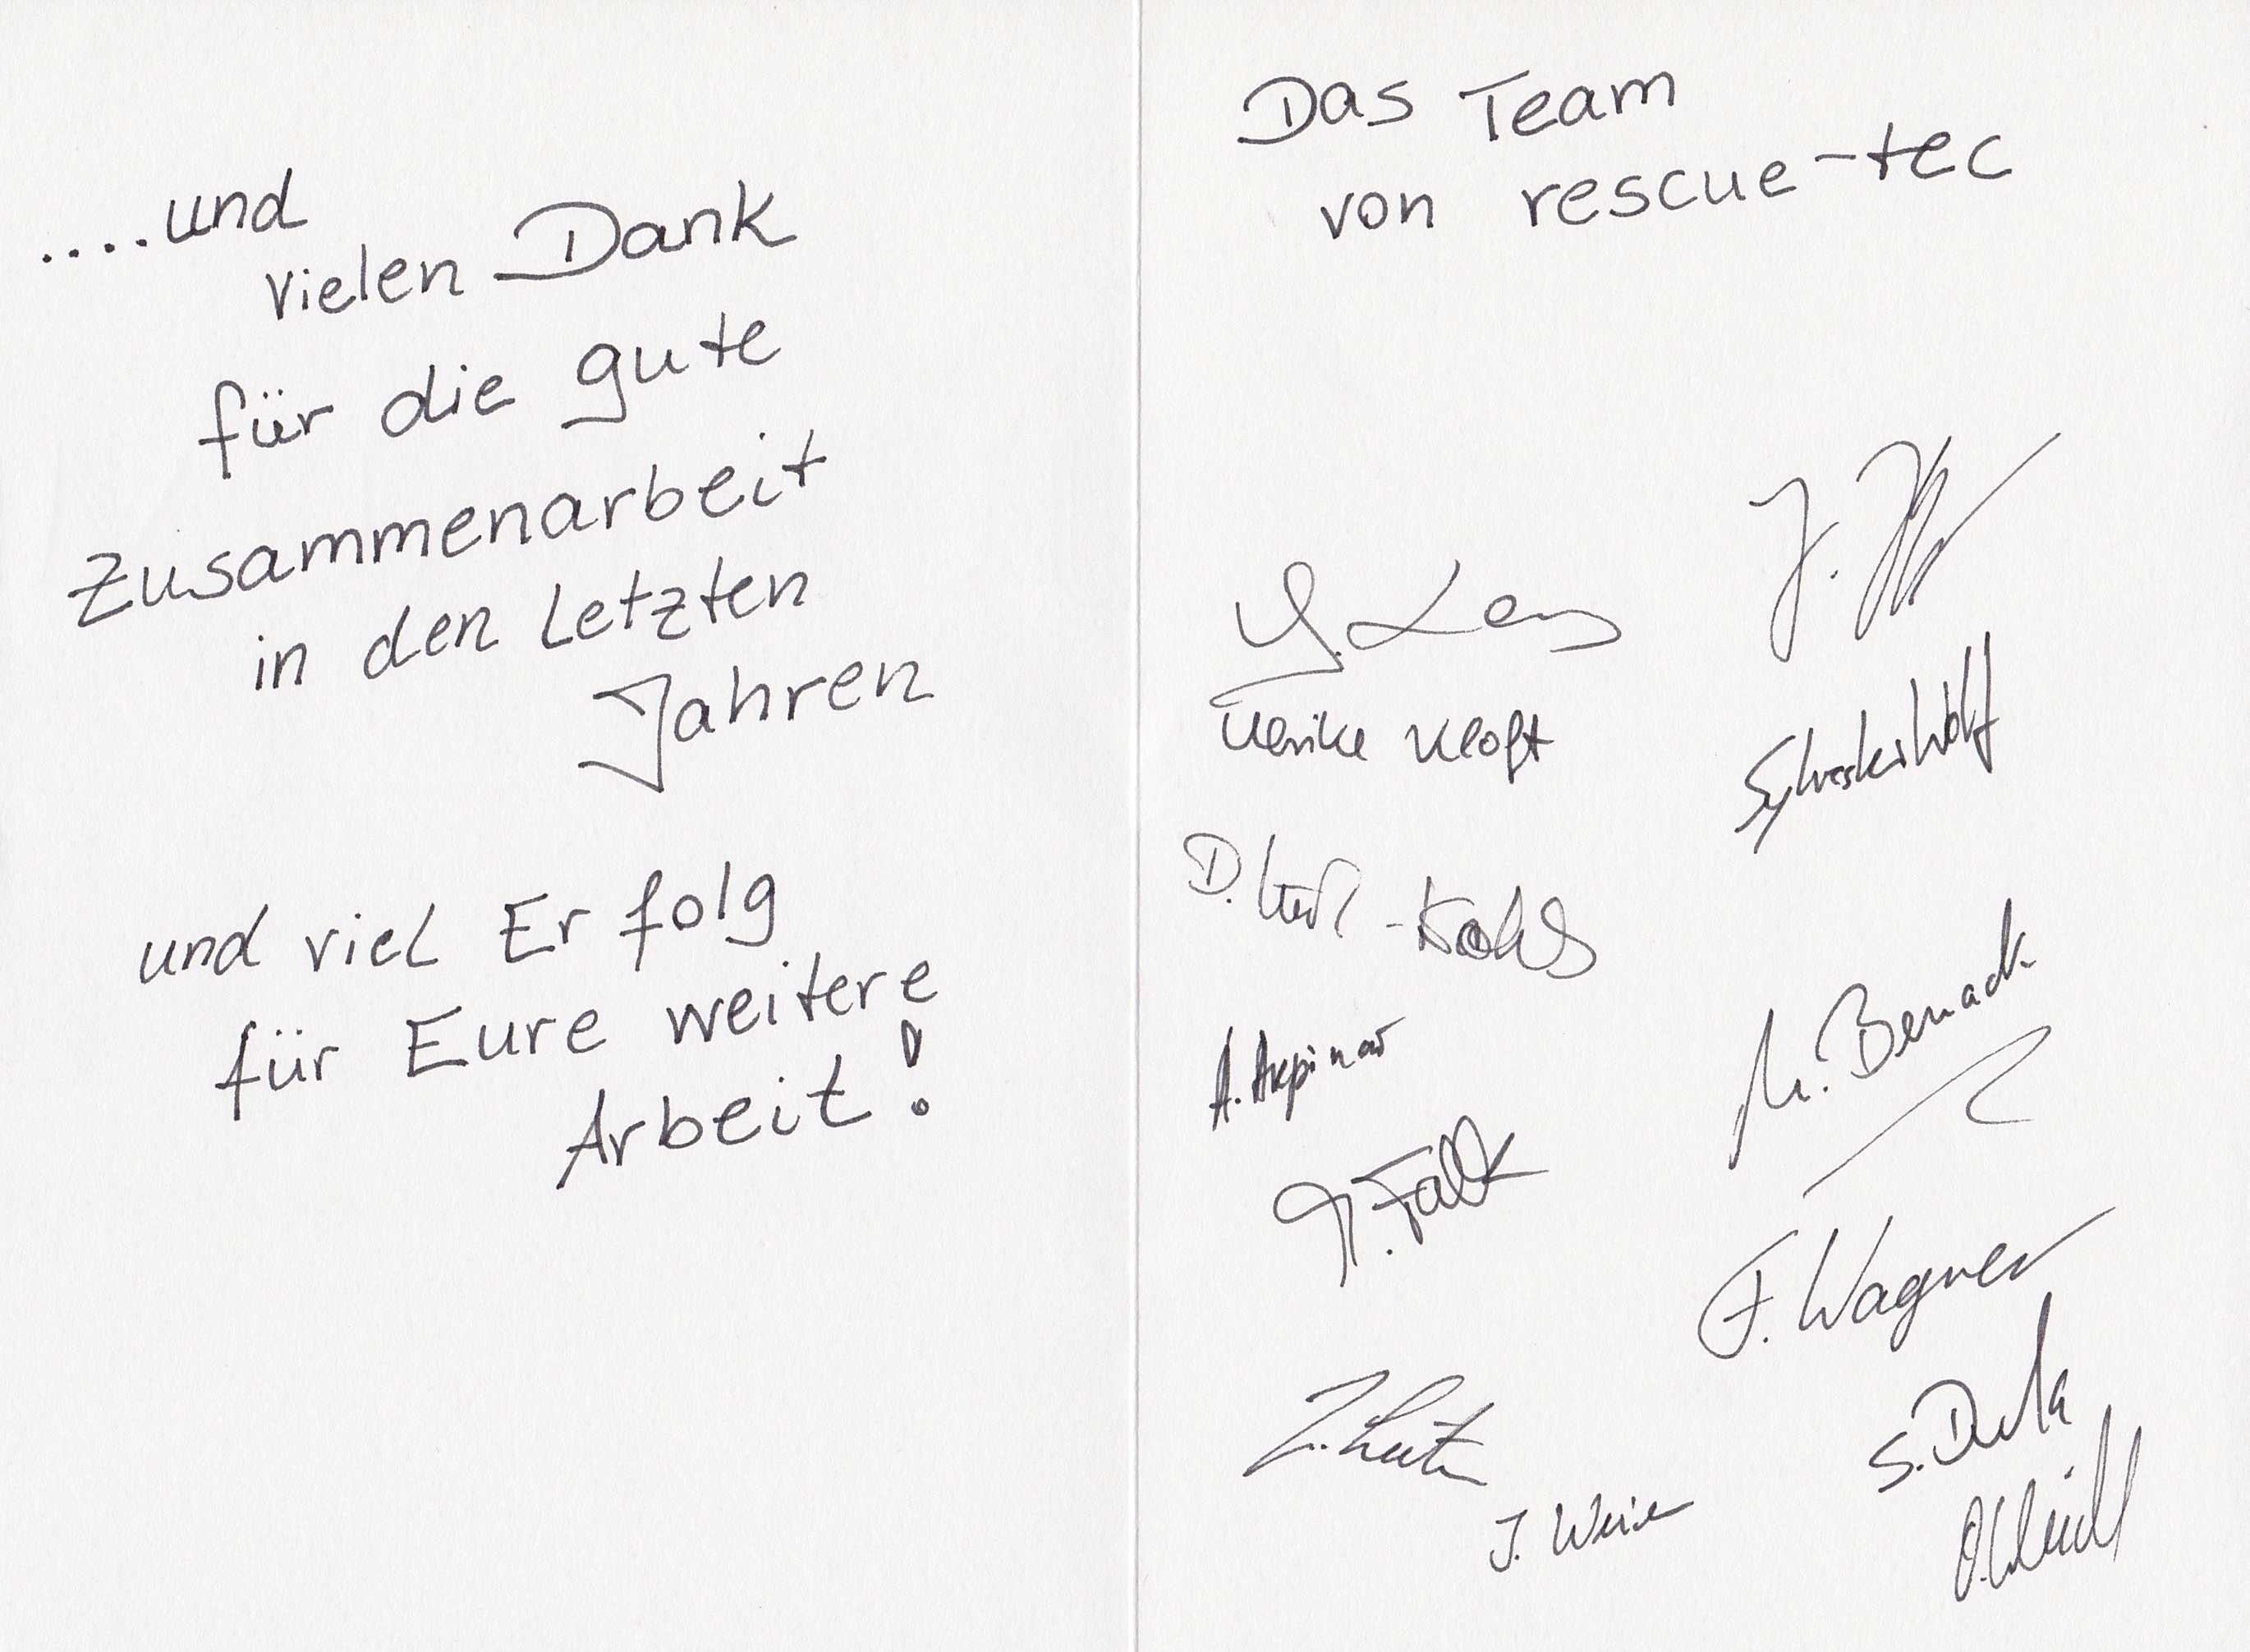 ....und
vielen Dank
für die gute
Zusammenarbeit
in den Letzten
Jahren
und viel Erfolg
für Eure weitere
Arbeit!
Das Team
von rescue-tec
Ulrike Kloft
Sylvester Wolf
D.
A. Akpinar
M. Bernack
Falk
F. Wagner
S.
J.